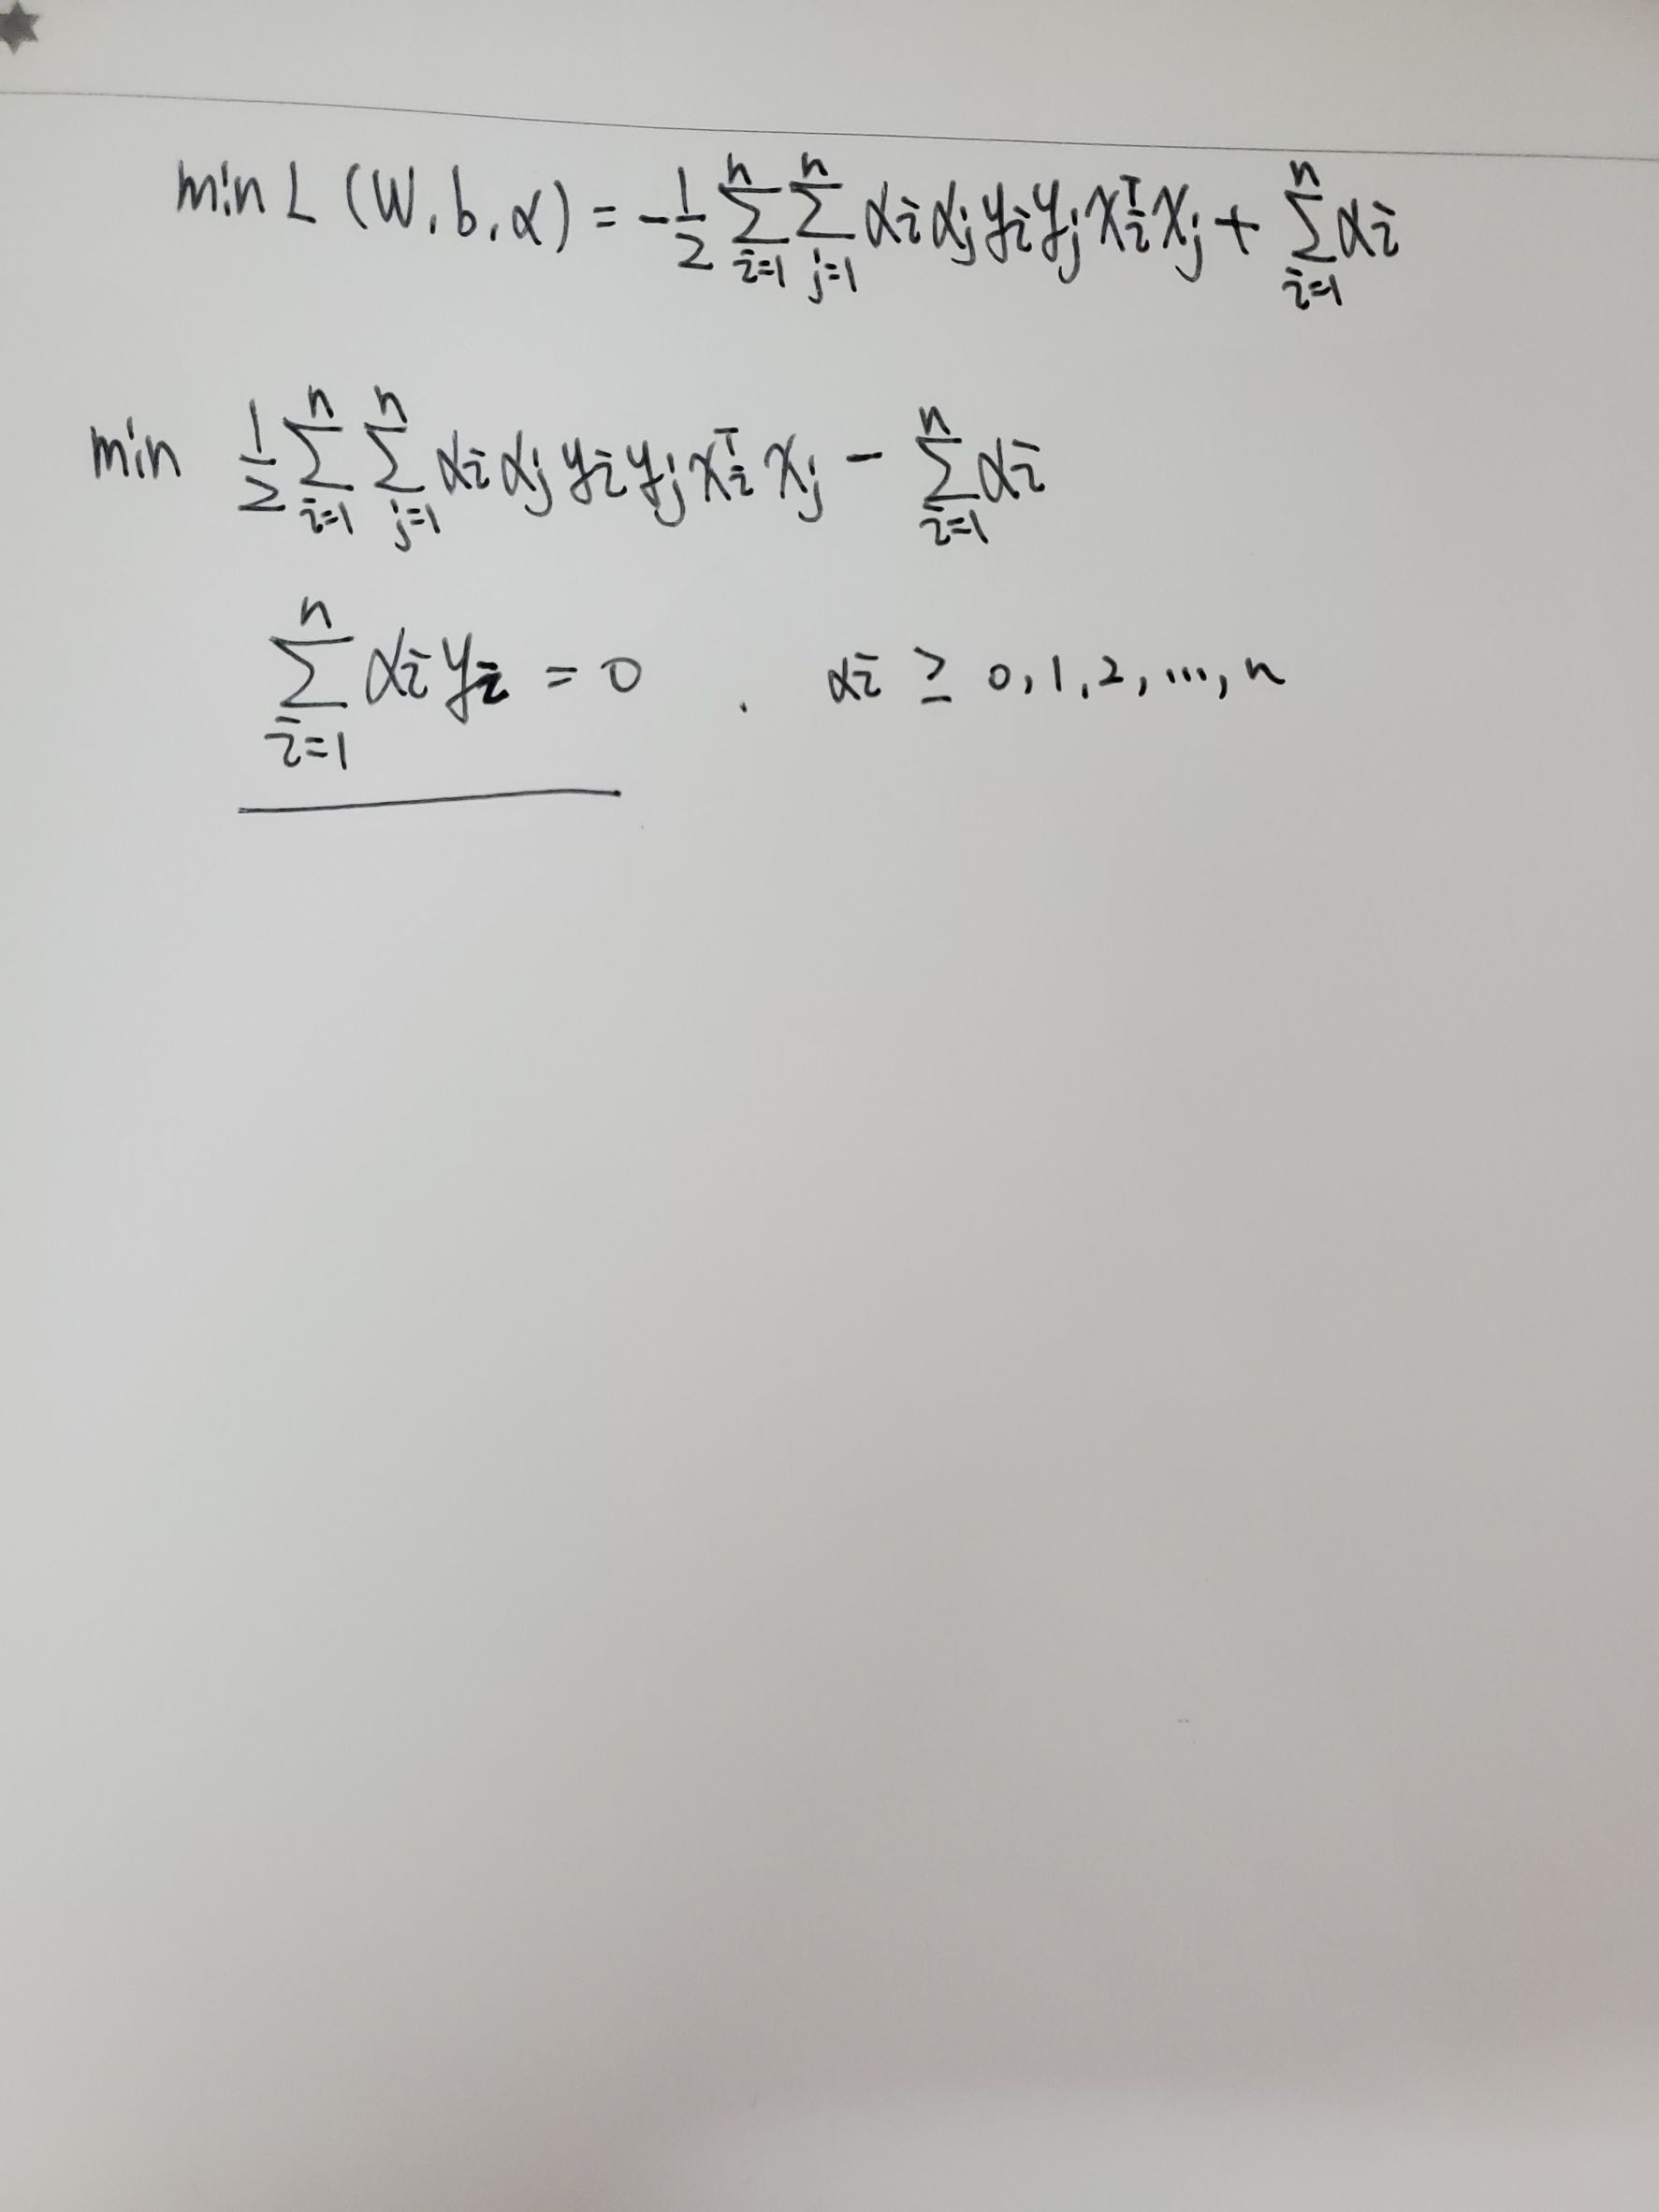 min L (W, b, α) = -1/2 ∑_{i=1}^{n} ∑_{j=1}^{n} α_i α_j y_i y_j x_i^T x_j + ∑_{i=1}^{n} α_i
min 1/2 ∑_{i=1}^{n} ∑_{j=1}^{n} α_i α_j y_i y_j x_i^T x_j - ∑_{i=1}^{n} α_i
∑_{i=1}^{n} α_i y_i = 0 , α_i ≥ 0, 1, 2, ..., n